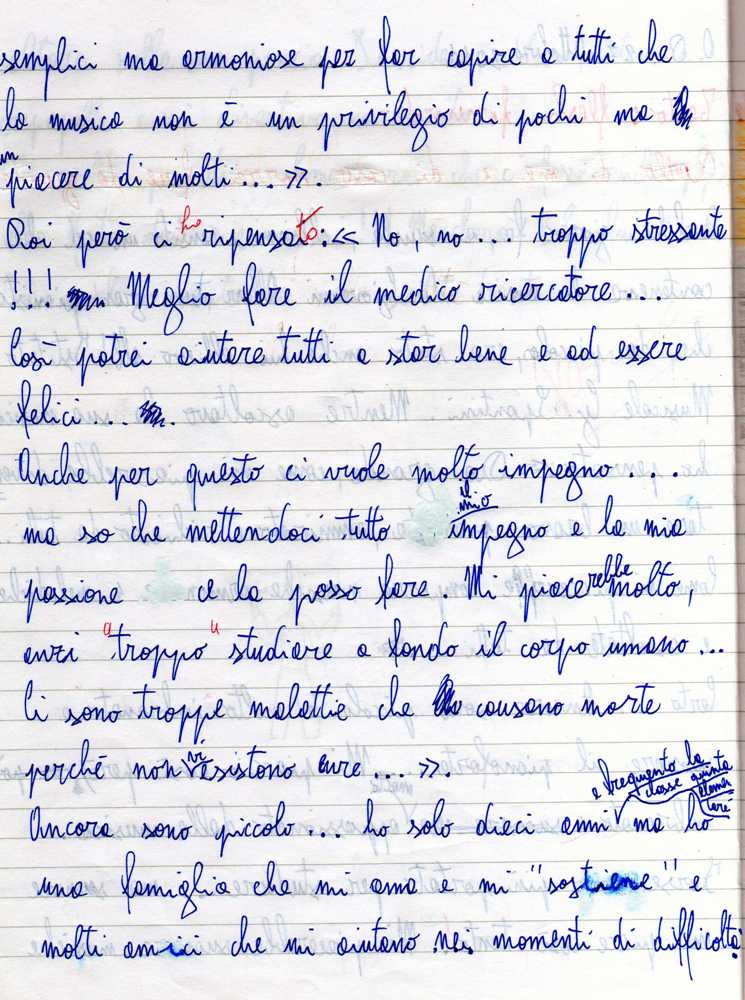 semplici ma armoniose per far capire a tutti che
la musica non è un privilegio di pochi ma
un
piacere di molti... ».
Poi però ci ho ripensato: « No, no... troppo stressante
!!! Meglio fare il medico ricercatore...
Così potrei aiutare tutti a star bene e ad essere
felici...
Anche per questo ci vuole molto impegno...
il mio
ma so che mettendoci tutto impegno e la mia
passione ce la posso fare. Mi piacerebbe molto,
anzi "troppo" studiare a fondo il corpo umano...
Ci sono troppe malattie che causano morte
perché non vi esistono cure... ».
e frequento la
classe quinta
elementare
Ancora sono piccolo... ho solo dieci anni ma ho
una famiglia che mi ama e mi "sostiene" e
molti amici che mi aiutano nei momenti di difficoltà.